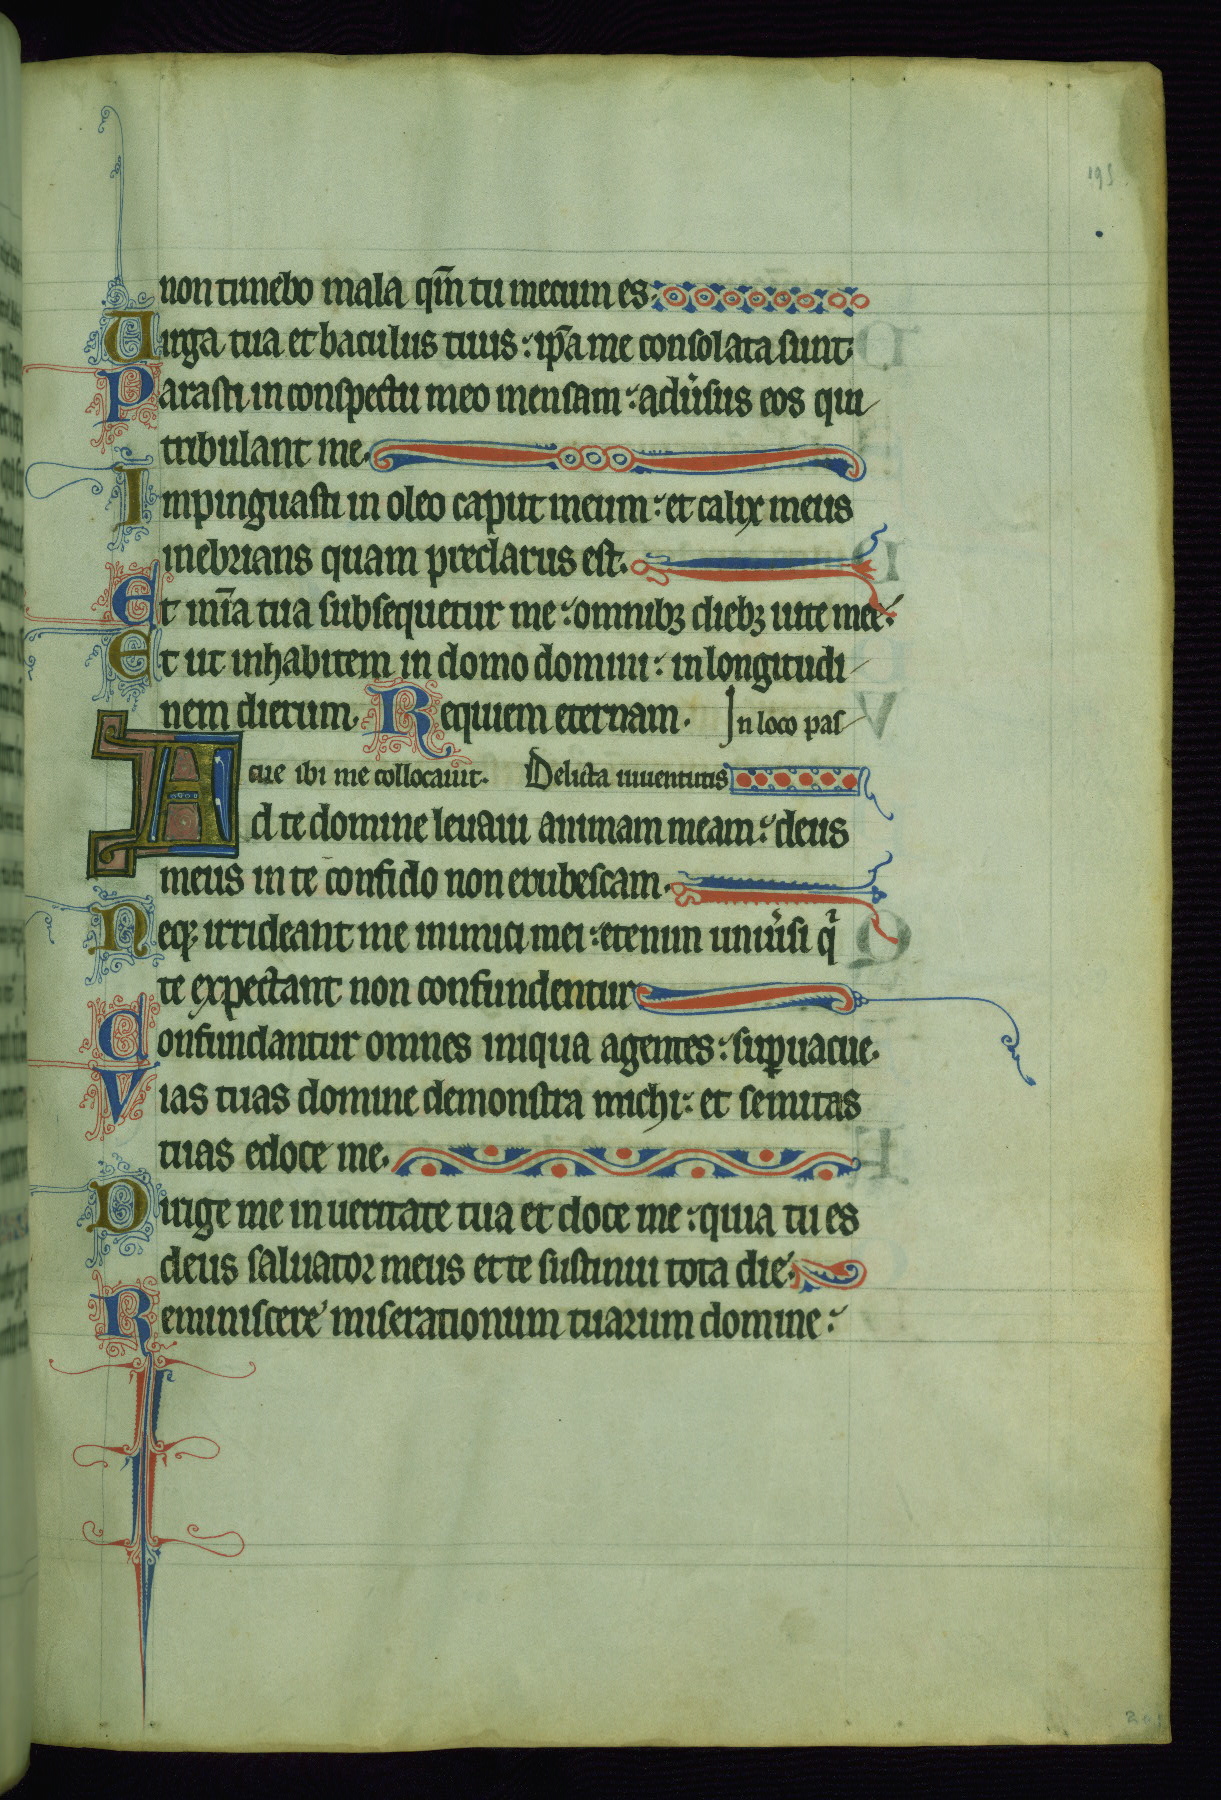 195
non timebo mala qm̄ tu mecum es.
Uirga tua et baculus tuus : ip̄a me consolata sunt
Parasti in conspectu meo mensam : aduˀsus eos qui
tribulant me.
Impinguasti in oleo caput meum : et calix meus
inebrians quam preclarus est.
Et mīa tua subsequetur me : omnibꝫ diebꝫ uite mee.
Et ut inhabitem in domo domini : in longitudi
nem dierum. Requiem eternam. In loco pas
cue ibi me collocauit. Delicta iuuentutis
Ad te domine leuaui animam meam : deus
meus in te confido non erubescam.
Neqꝫ irrideant me inimici mei : etenim uniuˀsi qⁱ
te expectant non confundentur
Confundantur omnes iniqua agentes : suꝑuacue.
Vias tuas domine demonstra michi : et semitas
tuas edoce me.
Dirige me in ueritate tua et doce me : quia tu es
deus saluator meus et te sustinui tota die.
Reminiscere miserationum tuarum domine :